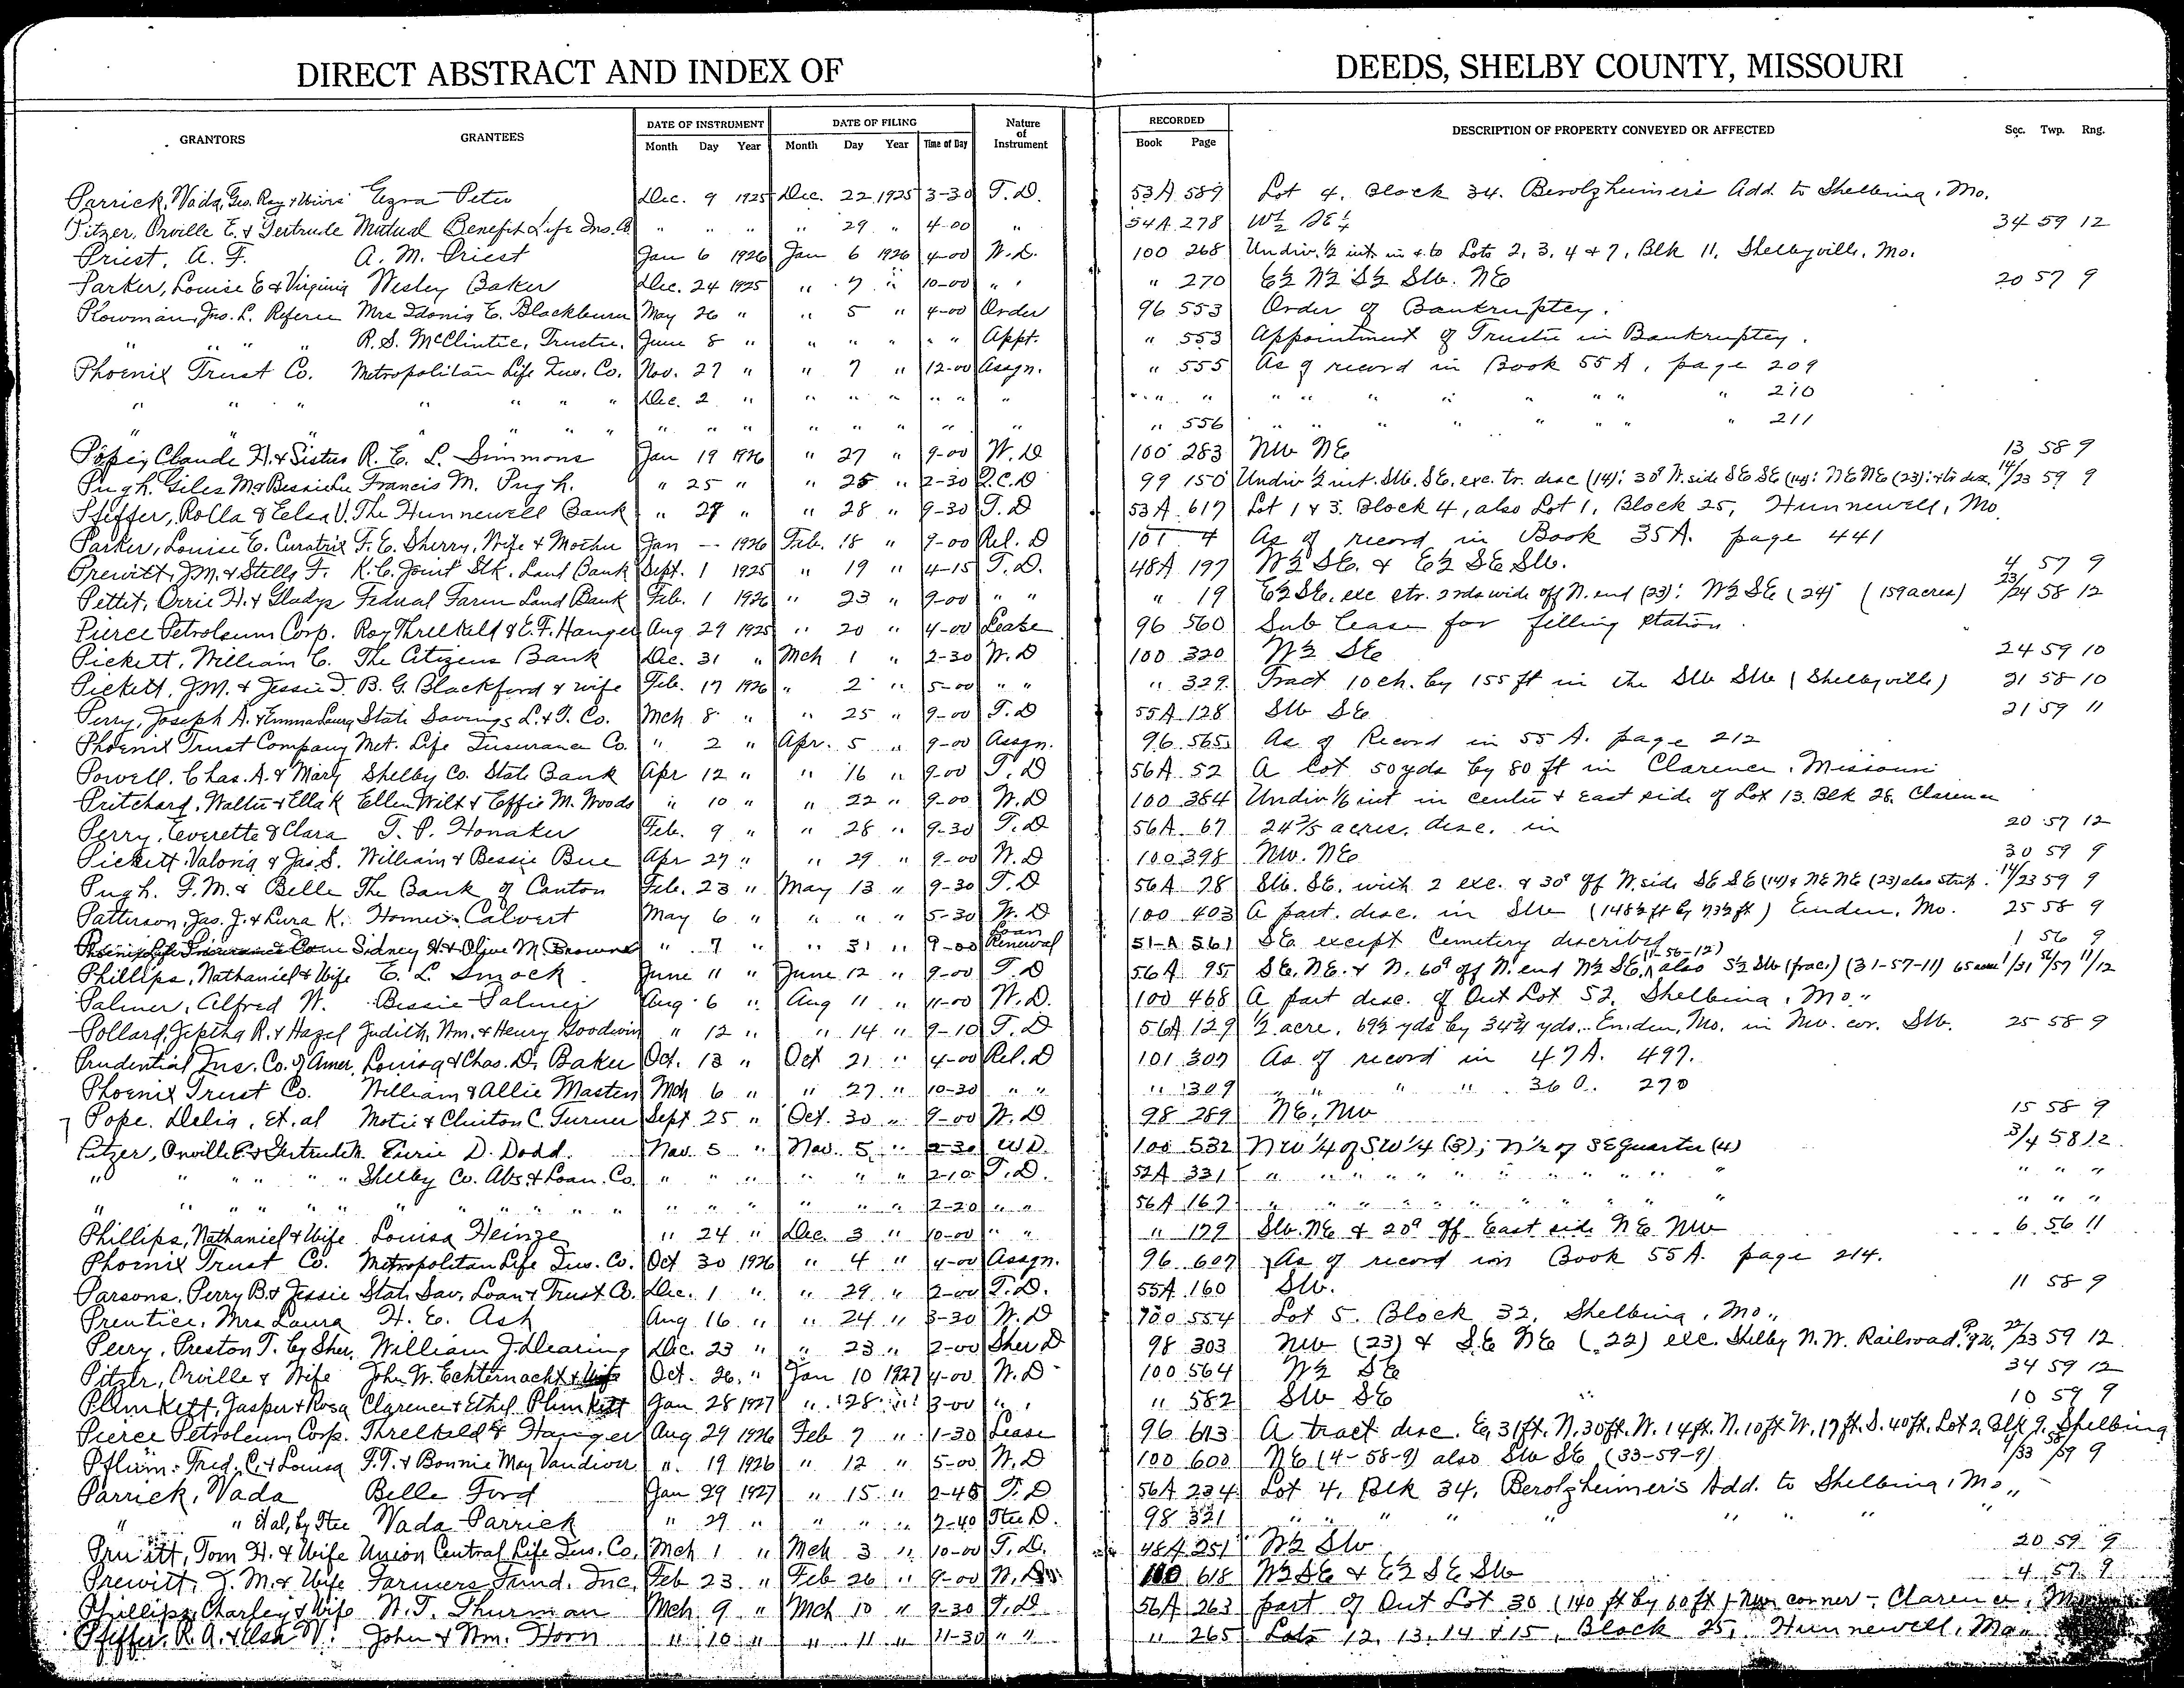 DIRECT ABSTRACT AND INDEX OF DEEDS, SHELBY COUNTY, MISSOURI
GRANTORS GRANTEES DATE OF INSTRUMENT DATE OF FILING Nature of Instrument RECORDED DESCRIPTION OF PROPERTY CONVEYED OR AFFECTED Sec. Twp. Rng.
Month Day Year Month Day Year Time of Day Book Page
Parrick, Vada, Geo. Ray & Ezra Peter Dec. 9 1925 Dec. 22 1925 3-30 T.D. 53A 589 Lot 4. Block 34. Berolzheimer's Add. to Shelbina, Mo.
Pitzer, Orville E. & Gertrude Mutual Benefit Life Ins. Co. " " " " 29 " 4-00 " 54A 278 W½ SE¼ 34 59 12
Priest, A. F. A. M. Priest Jan 6 1926 Jan 6 1926 4-00 W.D. 100 268 Undiv. ½ int. in & to Lots 2, 3, 4 & 7, Blk 11, Shelbyville, Mo.
Parker, Louise E & Virginia Wesley Baker Dec. 24 1925 " 7 " 10-00 " " " 270 E½ N½ S½ SW. NE 20 57 9
Plowman, Jno. L. Referee Mrs Idonia E. Blackburn May 26 " " 5 " 4-00 Order 96 553 Order of Bankruptcy.
" " " " R. S. McClintic, Trustee. June 8 " " " " " " Appt. " 553 Appointment of Trustee in Bankruptcy.
Phoenix Trust Co. Metropolitan Life Ins. Co. Nov. 27 " " 7 " 12-00 Assgn. " 555 As of record in Book 55A, page 209
" " " " " " " " Dec. 2 " " " " " " " " " " " " " " " " " 210
" " " " " " " " " " " " " " " " " " 556 " " " " " " " " 211
Pope, Claude H. & Sisters R. E. L. Simmons Jan 19 1926 " 27 " 9-00 W.D 100 283 NW NE 13 58 9
Pugh. Giles M & Bessie Lu Francis M. Pugh. " 25 " " 25 " 2-30 Q.C.D 99 150 Undiv ½ int. SW. SE. exc. tr. desc (14): 30ᵃ W. side SE SE (14): NE NE (23): 14/23 59 9
Pfiffer, Rolla & Eelsa V. The Hunnewell Bank " 27 " " 28 " 9-30 T.D 53A 617 Lot 1 & 3. Block 4, also Lot 1, Block 25, Hunnewell, Mo.
Parker, Louise E. Curatrix F. E. Sherry, Wife & Mother Jan — 1926 Feb. 18 " 9-00 Rel. D 101 4 As of record in Book 35A. page 441
Prewitt, J.M. & Stella F. K.C. Joint Stk. Land Bank Sept. 1 1925 " 19 " 4-15 T.D. 48A 197 W½ SE. & E½ SE SW. 4 57 9
Pettit, Orrie H. & Gladys Federal Farm Land Bank Feb. 1 1926 " 23 " 9-00 " " " 19 E½ SE. exc str. 2 rds wide off N. end (23): W½ SE (24) (159 acres) 23/24 58 12
Pierce Petroleum Corp. Roy Threlkeld & E.F. Hanger Aug 29 1925 " 20 " 4-00 Lease 96 560 Sub Lease for filling station.
Pickett, William C. The Citizens Bank Dec. 31 " Mch 1 " 2-30 W.D 100 320 W½ SE 24 59 10
Pickett, J.M. & Jessie T. B. G. Blackford & wife Feb. 17 1926 " 2 " 5-00 " " " 329 Tract 10 ch. by 155 ft in the SW SW (Shelbyville) 21 58 10
Perry, Joseph A. & Emma Laura State Savings L. & T. Co. Mch 8 " " 25 " 9-00 T.D 55A 128 SW SE 21 59 11
Phoenix Trust Company Met. Life Insurance Co. " 2 " Apr. 5 " 9-00 Assgn. 96 565 As of Record in 55 A. page 212
Powell. Chas. A. & Mary Shelby Co. State Bank Apr 12 " " 16 " 9-00 T.D 56A 52 A lot 50 yds by 80 ft in Clarence, Missouri
Pritchard, Walter & Ella K Ellen Wilt & Effie M. Woods " 10 " " 22 " 9-00 W.D 100 384 Undiv 1/6 int in center & East side of Lot 13. Blk 28. Clarence
Perry, Everette & Clara T. P. Honaker Feb. 9 " " 28 " 9-30 T.D 56A 67 24 2/5 acres, desc. in 20 57 12
Pickett Valoria & Jas. S. William & Bessie Bue Apr 27 " " 29 " 9-00 W.D 100 398 NW. NE 30 59 9
Pugh. F. M. & Belle The Bank of Canton Feb. 23 " May 13 " 9-30 T.D 56A 78 SW. SE. with 2 exc. & 30ᵃ off W. side SE SE (14) & NE NE (23) also strip. 14/23 59 9
Patterson, Jas. J. & Lura K. Homer Calvert May 6 " " " " 5-30 W.D 100 403 A part. desc. in SW (148½ ft by 73½ ft) Emden, Mo. 25 58 9
Phoenix Life Insurance Co Sidney H. & Olive M. Browne " 7 " " 31 " 9-00 Loan Renewal 51-A 561 SE except Cemetery described 1 56 9
Phillips, Nathaniel & Wife E. L. Smock June 11 " June 12 " 9-00 T.D 56A 95 SE. NE. & N. 60ᵃ off N. end W½ SE, (1-56-12) also S½ SW (frac.) (31-57-11) 65 acres 1/31 56/57 11/12
Palmer, Alfred W. Bessie Palmer Aug 6 " Aug 11 " 11-00 W.D. 100 468 A part desc. of Out Lot 52, Shelbina, Mo."
Pollard, Jeptha R. & Hazel Judith, Wm. & Henry Goodwin " 12 " " 14 " 9-10 T.D 56A 129 ½ acre, 69½ yds by 34¾ yds, Emden, Mo. in NW. cor. SW. 25 58 9
Prudential Ins. Co. of Amer. Louisa & Chas. D. Baker Oct. 13 " Oct 21 " 4-00 Rel. D 101 307 As of record in 47A. 497.
Phoenix Trust Co. William & Allie Masten Mch 6 " " 27 " 10-30 " " " 309 " " " " 360. 270
Pope. Delia, et. al Motie & Clinton C. Turner Sept 25 " Oct. 30 " 9-00 W.D 98 289 NE. NW 15 58 9
Pitzer, Orville E. & Gertrude H. Eurie D. Dodd. Nov. 5 " Nov. 5 " 2-30 WD. 100 532 NW ¼ of SW ¼ (3); N½ of SE quarter (4) 3/4 58 12
" " " " " " Shelby Co. Abs. & Loan Co. " " " " " " 2-10 T.D. 52A 331 " " " " " " " " " " " " "
" " " " " " " " " " " " " " " " " 2-20 " " 56A 167 " " " " " " " " " " " " "
Phillips, Nathaniel & Wife Louisa Heinze " 24 " Dec. 3 " 10-00 " " " 179 SW. NE & 20ᵃ off East side NE NW 6 56 11
Phoenix Trust Co. Metropolitan Life Ins. Co. Oct 30 1926 " 4 " 4-00 Assgn. 96 607 As of record in Book 55A. page 214.
Parsons, Perry B. & Jessie State Sav. Loan & Trust Co. Dec. 1 " " 29 " 2-00 T.D. 55A 160 SW. 11 58 9
Prentice, Mrs Laura H. E. Ash Aug 16 " " 24 " 3-30 W.D 100 554 Lot 5. Block 32, Shelbina, Mo.,
Perry, Preston T. by Sher. William J. Dearing Dec. 23 " " 23 " 2-00 Sher D 98 303 NW (23) & SE NE (22) exc. Shelby N.W. Railroad. 22/23 59 12
Pitzer, Orville & Wife John W. Echternacht & Wife Oct. 26. " Jan 10 1927 4-00 W.D 100 564 W½ SE 34 59 12
Plunkett, Jasper & Rosa Clarence & Ethel Plunkett Jan 28 1927 " 28 " 3-00 " " " 582 SW SE 10 59 9
Pierce Petroleum Corp. Threlkeld & Hanger Aug 29 1926 Feb 7 " 1-30 Lease 96 613 A tract desc. E. 31 ft. N. 30 ft. W. 14 ft. N. 10 ft W. 17 ft. S. 40 ft. Lot 2, Blk 9. Shelbina
Pflum. Fred. C. & Louisa T.T. & Bonnie May Vandiver " 19 1926 " 12 " 5-00 W.D 100 600 NE (4-58-9) also SW SE (33-59-9) 4/33 58/59 9
Parrick, Vada Belle Ford Jan 29 1927 " 15 " 2-45 T.D 56A 234 Lot 4, Blk 34, Berolzheimer's Add. to Shelbina, Mo.,
" " et al, by Stee Vada Parrick " 29 " " " " 2-40 Stee D. 98 321 " " " " " " " "
Pruitt, Tom H. & Wife Union Central Life Ins. Co. Mch 1 " Mch 3 " 10-00 T.D. 48A 251 W½ SW 20 59 9
Prewitt, J. M. & Wife Farmers Fund. Inc. Feb 23 " Feb 26 " 9-00 W.D. 100 618 W½ SE & E½ SE SW 4 57 9
Phillips, Charley & Wife W. T. Thurman Mch 9 " Mch 10 " 9-30 T.D. 56A 263 part of Out Lot 30 (140 ft by 60 ft) NW corner - Clarence, M
Pfeffer. R. A. & Elsa V. John & Wm. Horn " 10 " " 11 " 11-30 " " " 265 Lots 12, 13, 14 & 15, Block 25, Hunnewell, Mo.